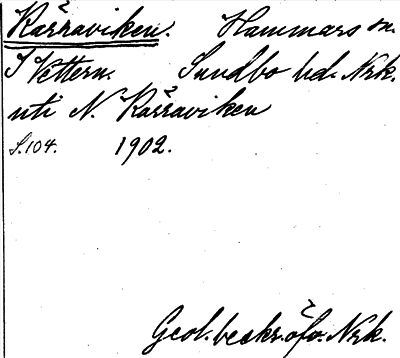 Kärraviken. Hammars sn.
I Vettern. Sundbo hd. Nrk.
uti N. Kärraviken
S.104. 1902.
Geol. beskr. öfv. Nrk.